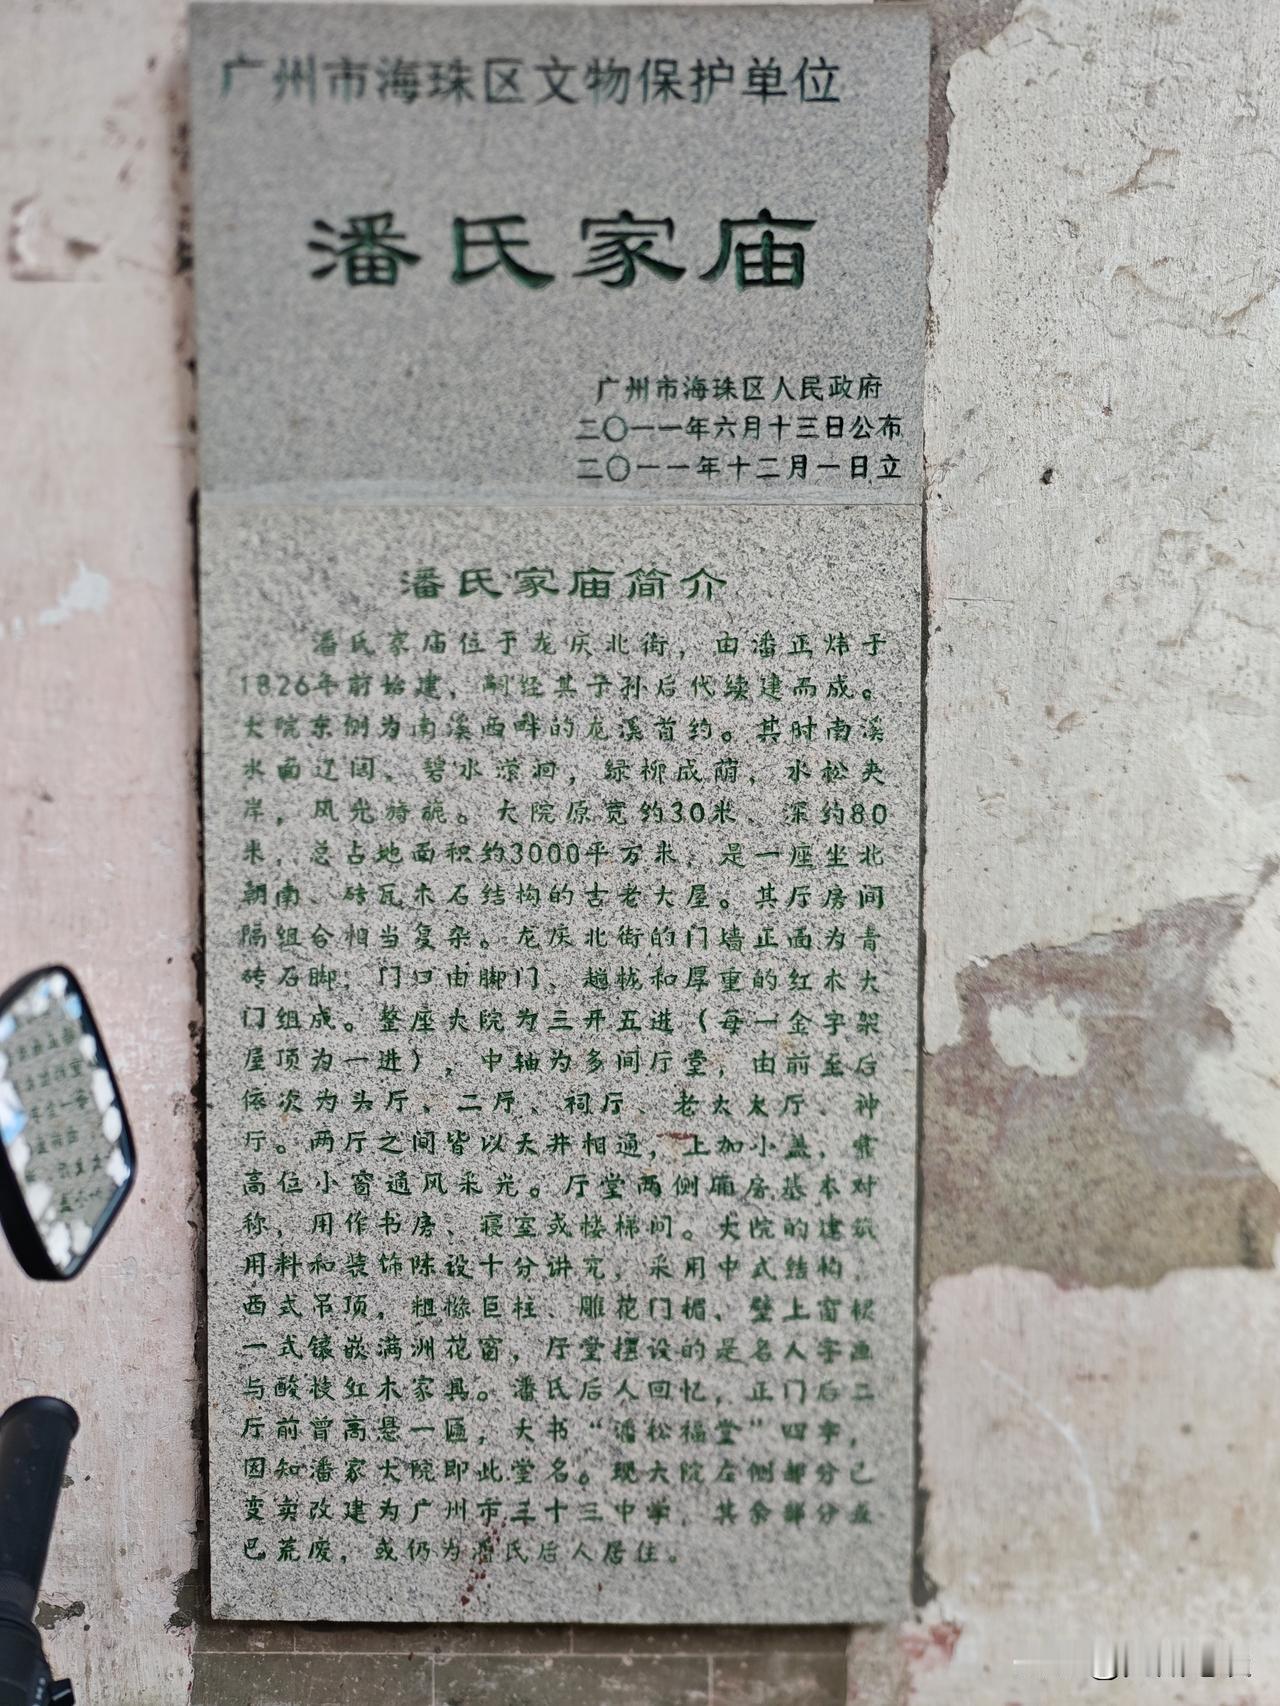 广州市海珠区文物保护单位
潘氏家庙
广州市海珠区人民政府
二〇一一年六月十三日公布
二〇一一年十二月一日立
潘氏家庙简介
潘氏家庙位于龙庆北街，由潘正炜于
1826年前始建，嗣经其子孙后代续建而成。
大院东侧为南溪西畔的龙溪首约。其时南溪
水面辽阔，碧水潆洄，绿柳成荫，水松夹
岸，风光旖旎。大院原宽约30米、深约80
米，总占地面积约3000平方米，是一座坐北
朝南、砖瓦木石结构的古老大屋。其厅房间
隔组合相当复杂。龙庆北街的门墙正面为青
砖石脚，门口由脚门、趟栊和厚重的红木大
门组成。整座大院为三开五进（每一金字架
屋顶为一进），中轴为多间厅堂，由前至后
依次为头厅、二厅、祠厅、老太太厅、神
厅。两厅之间皆以天井相通，上加小盖，靠
高位小窗通风采光。厅堂两侧厢房基本对
称，用作书房、寝室或楼梯间。大院的建筑
用料和装饰陈设十分讲究，采用中式结构，
西式吊顶，粗椽巨柱、雕花门楣，壁上窗棂
一式镶嵌满洲花窗，厅堂摆设的是名人字画
与酸枝红木家具。潘氏后人回忆，正门后二
厅前曾高悬一匾，大书“潘松福堂”四字，
因知潘家大院即此堂名。现大院左侧部分已
变卖改建为广州市三十三中学，其余部分或
已荒废，或仍为潘氏后人居住。